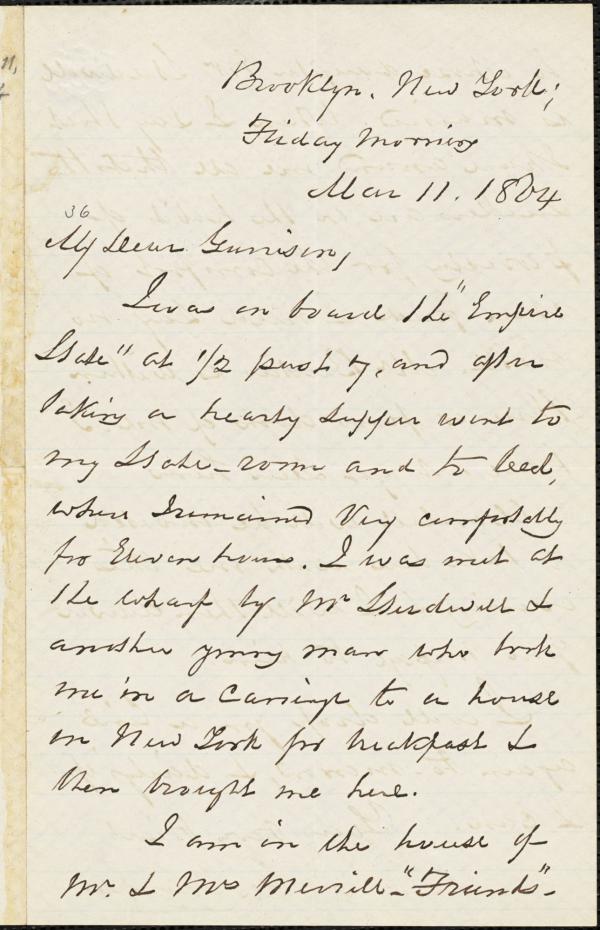 Brooklyn, New York;
Friday Morning
Mar 11. 1864
36
My Dear Garrison,
I was on board the "Empire
State" at 1/2 past 7, and after
taking a hearty supper went to
my State-room and to bed,
where I remained very comfortably
for Eleven hours. I was met at
the wharf by Mr &
another young man who took
me in a Carriage to a house
in New York for breakfast &
then brought me here.
I am in the house of
Mr. & Mrs Merrill - "Friends" -